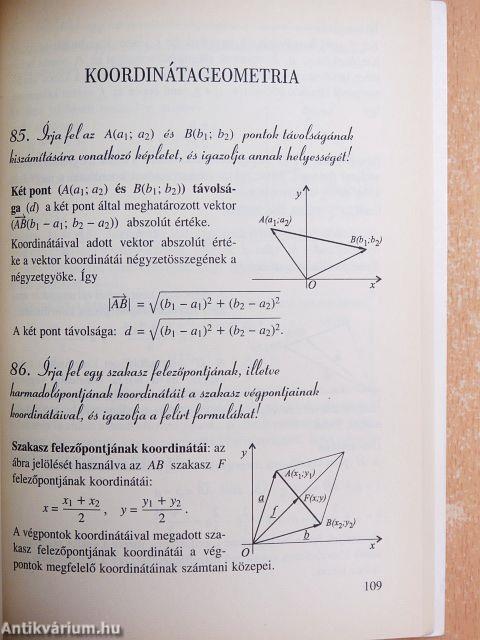 KOORDINÁTAGEOMETRIA
85. Írja fel az A(a₁; a₂) és B(b₁; b₂) pontok távolságának
kiszámítására vonatkozó képletet, és igazolja annak helyességét!
Két pont (A(a₁; a₂) és B(b₁; b₂)) távolsá-
ga (d) a két pont által meghatározott vektor
(AB⃗(b₁ − a₁; b₂ − a₂)) abszolút értéke.
Koordinátáival adott vektor abszolút érté-
ke a vektor koordinátái négyzetösszegének a
négyzetgyöke. Így
|AB⃗| = √((b₁ − a₁)² + (b₂ − a₂)²)
A két pont távolsága: d = √((b₁ − a₁)² + (b₂ − a₂)²).
y
A(a₁;a₂)
B(b₁;b₂)
O
x
86. Írja fel egy szakasz felezőpontjának, illetve
harmadolópontjának koordinátáit a szakasz végpontjainak
koordinátáival, és igazolja a felírt formulákat!
Szakasz felezőpontjának koordinátái: az
ábra jelölését használva az AB szakasz F
felezőpontjának koordinátái:
x = (x₁ + x₂)/2 , y = (y₁ + y₂)/2 .
A végpontok koordinátáival megadott sza-
kasz felezőpontjának koordinátái a vég-
pontok megfelelő koordinátáinak számtani közepei.
y
A(x₁;y₁)
F(x;y)
B(x₂;y₂)
a
f
b
O
x
109
Antikvárium.hu